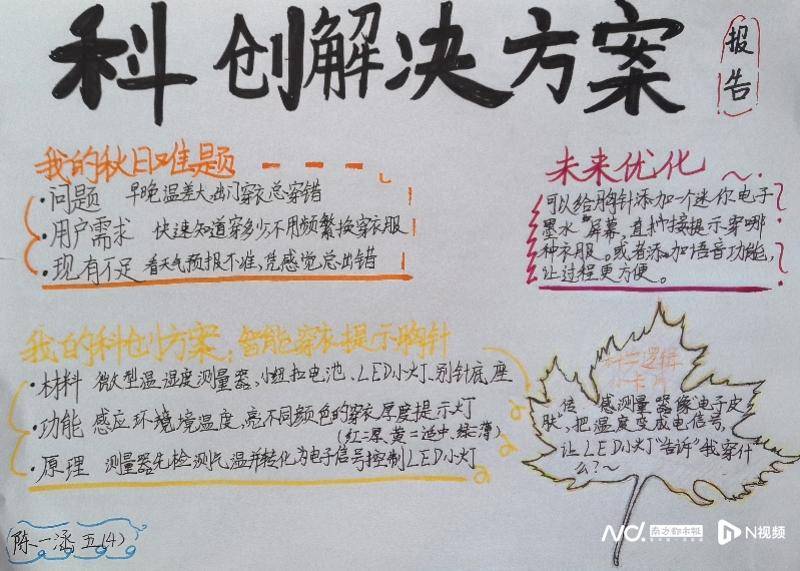 科创解决方案
报告
我的秋日难题
·问题 早晚温差大出门穿衣总穿错
·用户需求 快速知道穿多少,不用频繁换穿衣服
·现有不足 看天气预报不准,凭感觉总出错
未来优化
可以给胸针添加一个迷你电子
墨水"屏幕,直接提示穿哪
种衣服。或者添加语音功能,
让过程更方便。
我的科创方案:智能穿衣提示胸针
·材料 微型温湿度测量器、小纽扣电池、LED小灯、别针底座
·功能 感应环境境温度,亮不同颜色的穿衣厚度提示灯
(红=厚,黄=适中,绿=薄)
·原理 测量器先检测气温并转化为电子信号控制LED小灯
科学逻辑
小卡片
传感测量器像电子皮
肤,把温度变成电信号,
让LED小灯"告诉"我穿什
么?~
陈一涵 五(4)
南方都市报
N视频